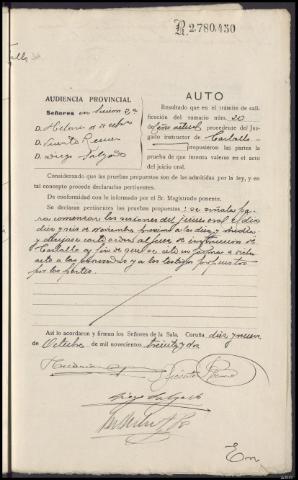 R.2.780.430
AUTO
AUDIENCIA PROVINCIAL
Señores
D.
D. Vicente
D. Diego Salgado
Resultando que en el trámite de cali-
ficación del sumario núm. 20
del año actual, procedente del Juz-
gado instructor de Carballo
propusieron las partes la
prueba de que intenta valerse en el acto
del juicio oral.
Considerando que las pruebas propuestas son de las admitidas por la ley, y en
tal concepto procede declararlas pertinentes.
De conformidad con lo informado por el Sr. Magistrado ponente.
Se declaran pertinentes las pruebas propuestas: se señala pa-
ra comenzar las sesiones del juicio oral el día
diez y seis de noviembre próximo a las diez y media
y diríjase carta orden al juez de instrucción de
Carballo a fin de que
acto a las procesadas y a los testigos propuestos
por las partes.
Así lo acordaron y firman los Señores de la Sala, Coruña diez y nueve
de Octubre de mil novecientos treinta y dos
Diego Salgado
En